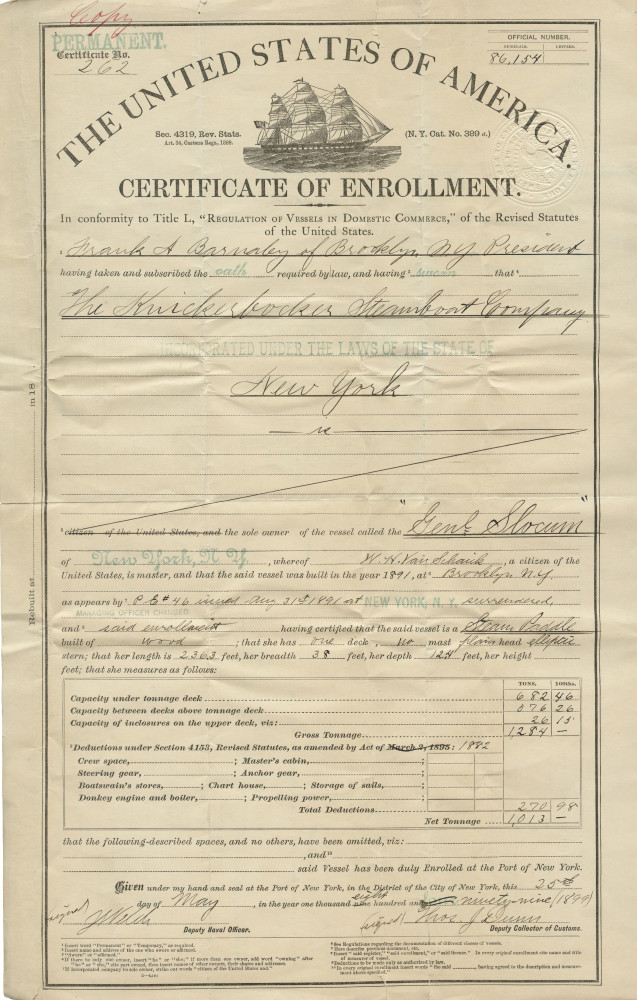 Copy
PERMANENT.
Certificate No.
262
OFFICIAL NUMBER.
NUMERALS. LETTERS.
86,154
THE UNITED STATES OF AMERICA.
Sec. 4319, Rev. Stats.
Art. 34, Customs Regs., 1899.
(N. Y. Cat. No. 389 d.)
CERTIFICATE OF ENROLLMENT.
In conformity to Title L, "REGULATION OF VESSELS IN DOMESTIC COMMERCE," of the Revised Statutes
of the United States.
Frank A Barnaby of Brooklyn N.Y. President
having taken and subscribed the oath required by law, and having sworn that
The Knickerbocker Steamboat Company
INCORPORATED UNDER THE LAWS OF THE STATE OF
New York
is
in 18
Rebuilt at
citizen of the United States, and the sole owner of the vessel called the "Genl. Slocum"
of New York, N. Y., whereof W. H. Van Schaick, a citizen of the
United States, is master, and that the said vessel was built in the year 1891, at Brooklyn N.Y.
as appears by P.E # 46 issued Aug 31st 1891 at NEW YORK, N. Y. surrendered,
MANAGING OFFICER CHANGED
and said enrollment having certified that the said vessel is a Steam Paddle
built of Wood; that she has one deck, No mast plain head elliptic
stern; that her length is 236.3 feet, her breadth 38 feet, her depth 12.4 feet, her height
feet; that she measures as follows:
TONS. 100ths.
Capacity under tonnage deck 682 46
Capacity between decks above tonnage deck 576 26
Capacity of inclosures on the upper deck, viz: 26 15
Gross Tonnage 1,284 —
Deductions under Section 4153, Revised Statutes, as amended by Act of March 2, 1895: 1882
Crew space, ; Master's cabin, ;
Steering gear, ; Anchor gear, ;
Boatswain's stores, ; Chart house, ; Storage of sails, ;
Donkey engine and boiler, ; Propelling power, ;
Total Deductions 270 98
Net Tonnage 1,013 —
that the following-described spaces, and no others, have been omitted, viz:
, and
said Vessel has been duly Enrolled at the Port of New York.
Given under my hand and seal at the Port of New York, in the District of the City of New York, this 25th
day of May, in the year one thousand eight hundred and ninety-nine (1899)
(signed)
Deputy Naval Officer.
(signed) Thos. J. Dunn
Deputy Collector of Customs.
Insert word "Permanent" or "Temporary," as required.
Insert name and address of the one who swears or affirmed.
"Sworn" or "affirmed."